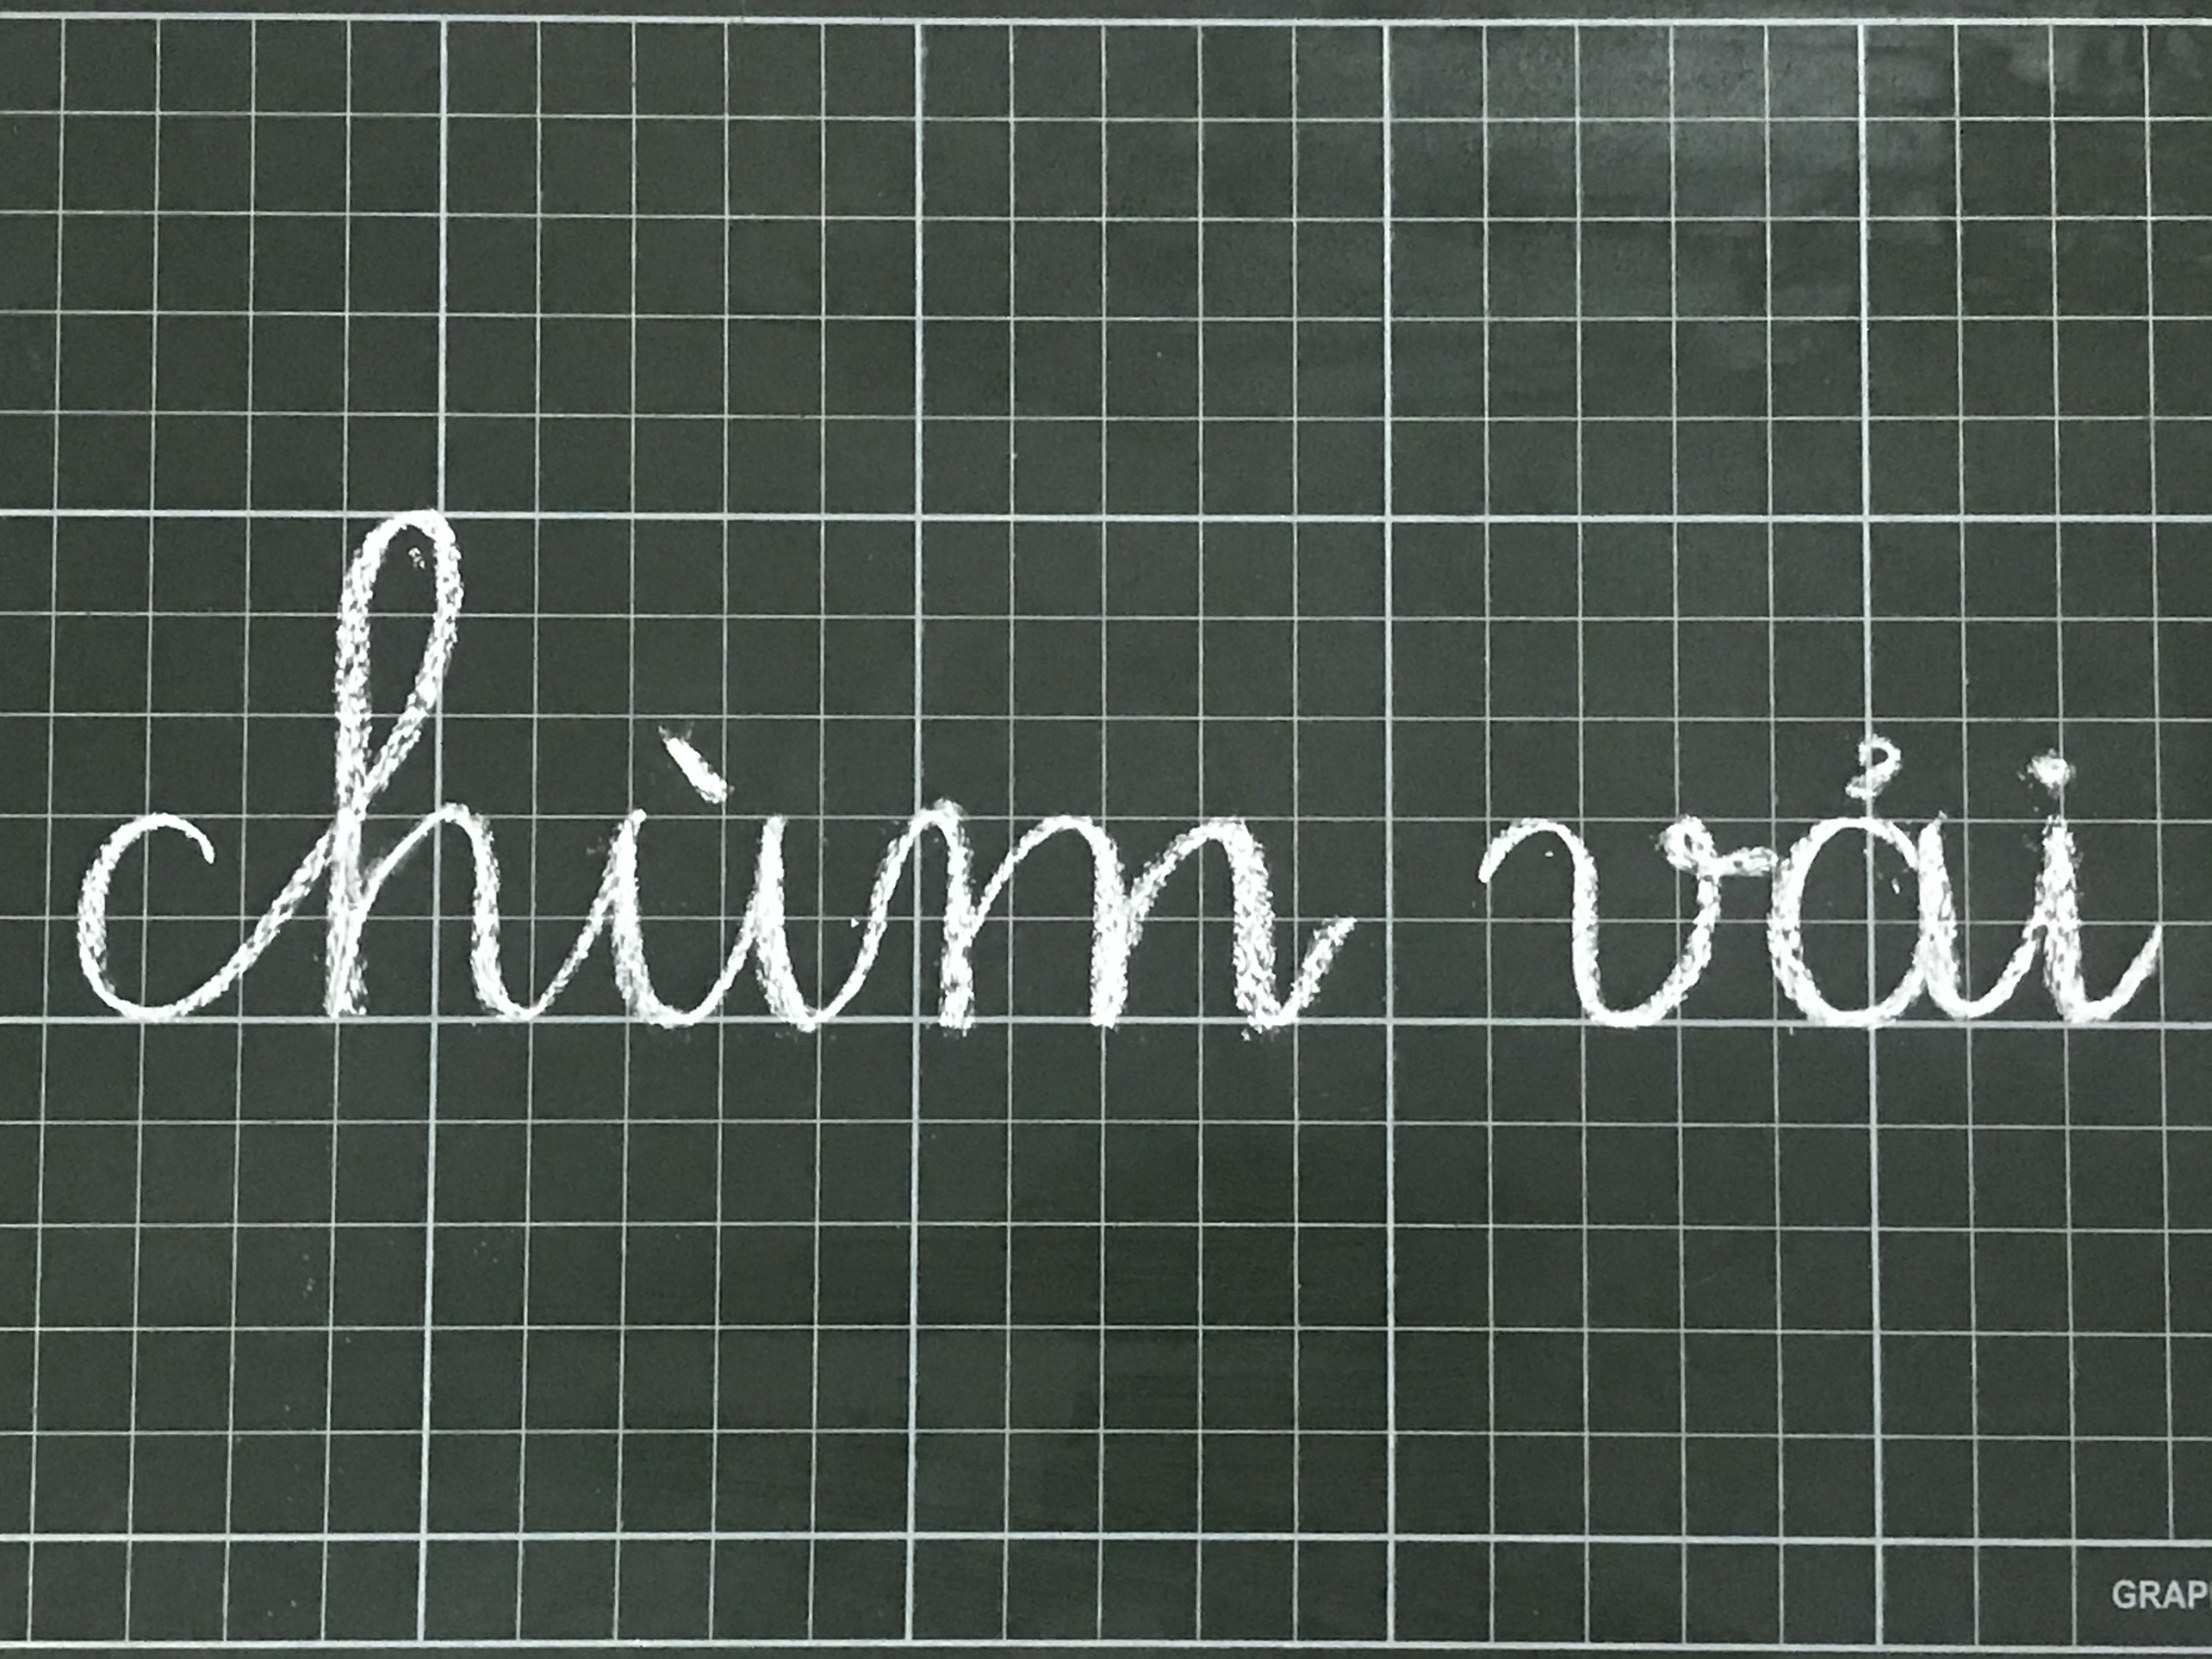 chùm vải
GRAP